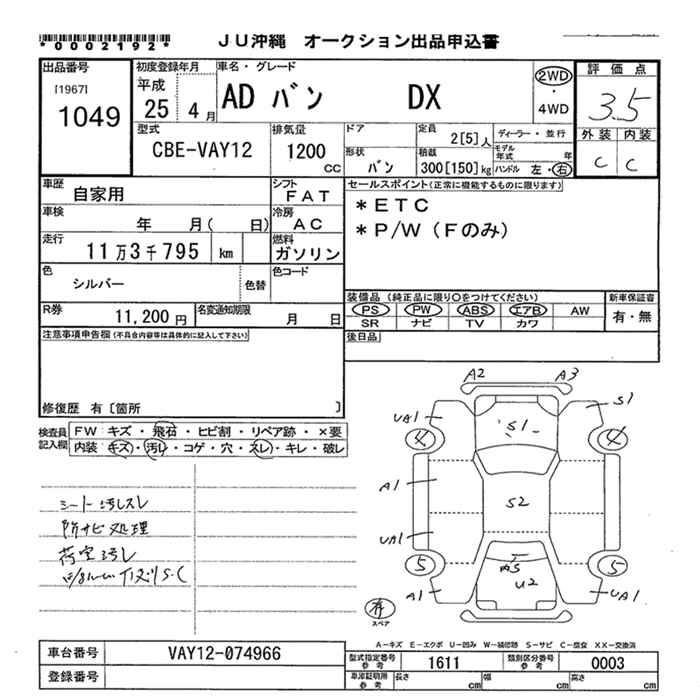 *0002192*
JU沖縄 オークション出品申込書
出品番号
[1967]
1049
初度登録年月
平成
25 4月
車名・グレード
AD バン DX
2WD
・
4WD
評価点
3.5
外装 内装
C C
型式
CBE-VAY12
排気量
1200
CC
ドア
形状
バン
定員
2[5]人
積載
300[150]kg
ディーラー・並行
モデル年式 年
ハンドル 左・右
車歴
自家用
シフト
FAT
車検
年 月( 日)
冷房
AC
走行
11万3千795 km
燃料
ガソリン
色
シルバー
色替
色コード
R券
11,200円
名変通知期限
月 日
セールスポイント(正常に機能するものに限ります)
*ETC
*P/W(Fのみ)
装備品(純正品に限り○をつけてください)
PS PW ABS エアB AW
SR ナビ TV カワ
新車保証書
有・無
後日品
注意事項申告欄(不具合内容等は具体的に記入して下さい)
修復歴 有〔箇所 〕
検査員記入欄
FW キズ・飛石・ヒビ割・リペア跡・×要
内装 キズ・汚レ・コゲ・穴・スレ・キレ・破レ
シート汚レスレ
防サビ処理
荷室汚レ
A2 A3
UA1 S1 S1
4 4
A1 S2
UA1
5 A5 5
A1 U2 UA1
有
スペア
A-キズ E-エクボ U-凹み W-補修跡 S-サビ C-腐食 XX-交換済
車台番号 VAY12-074966
登録番号
型式指定番号
参考
1611
類別区分番号
参考
0003
車庫証明用
参考
長さ cm 幅 cm 高さ cm